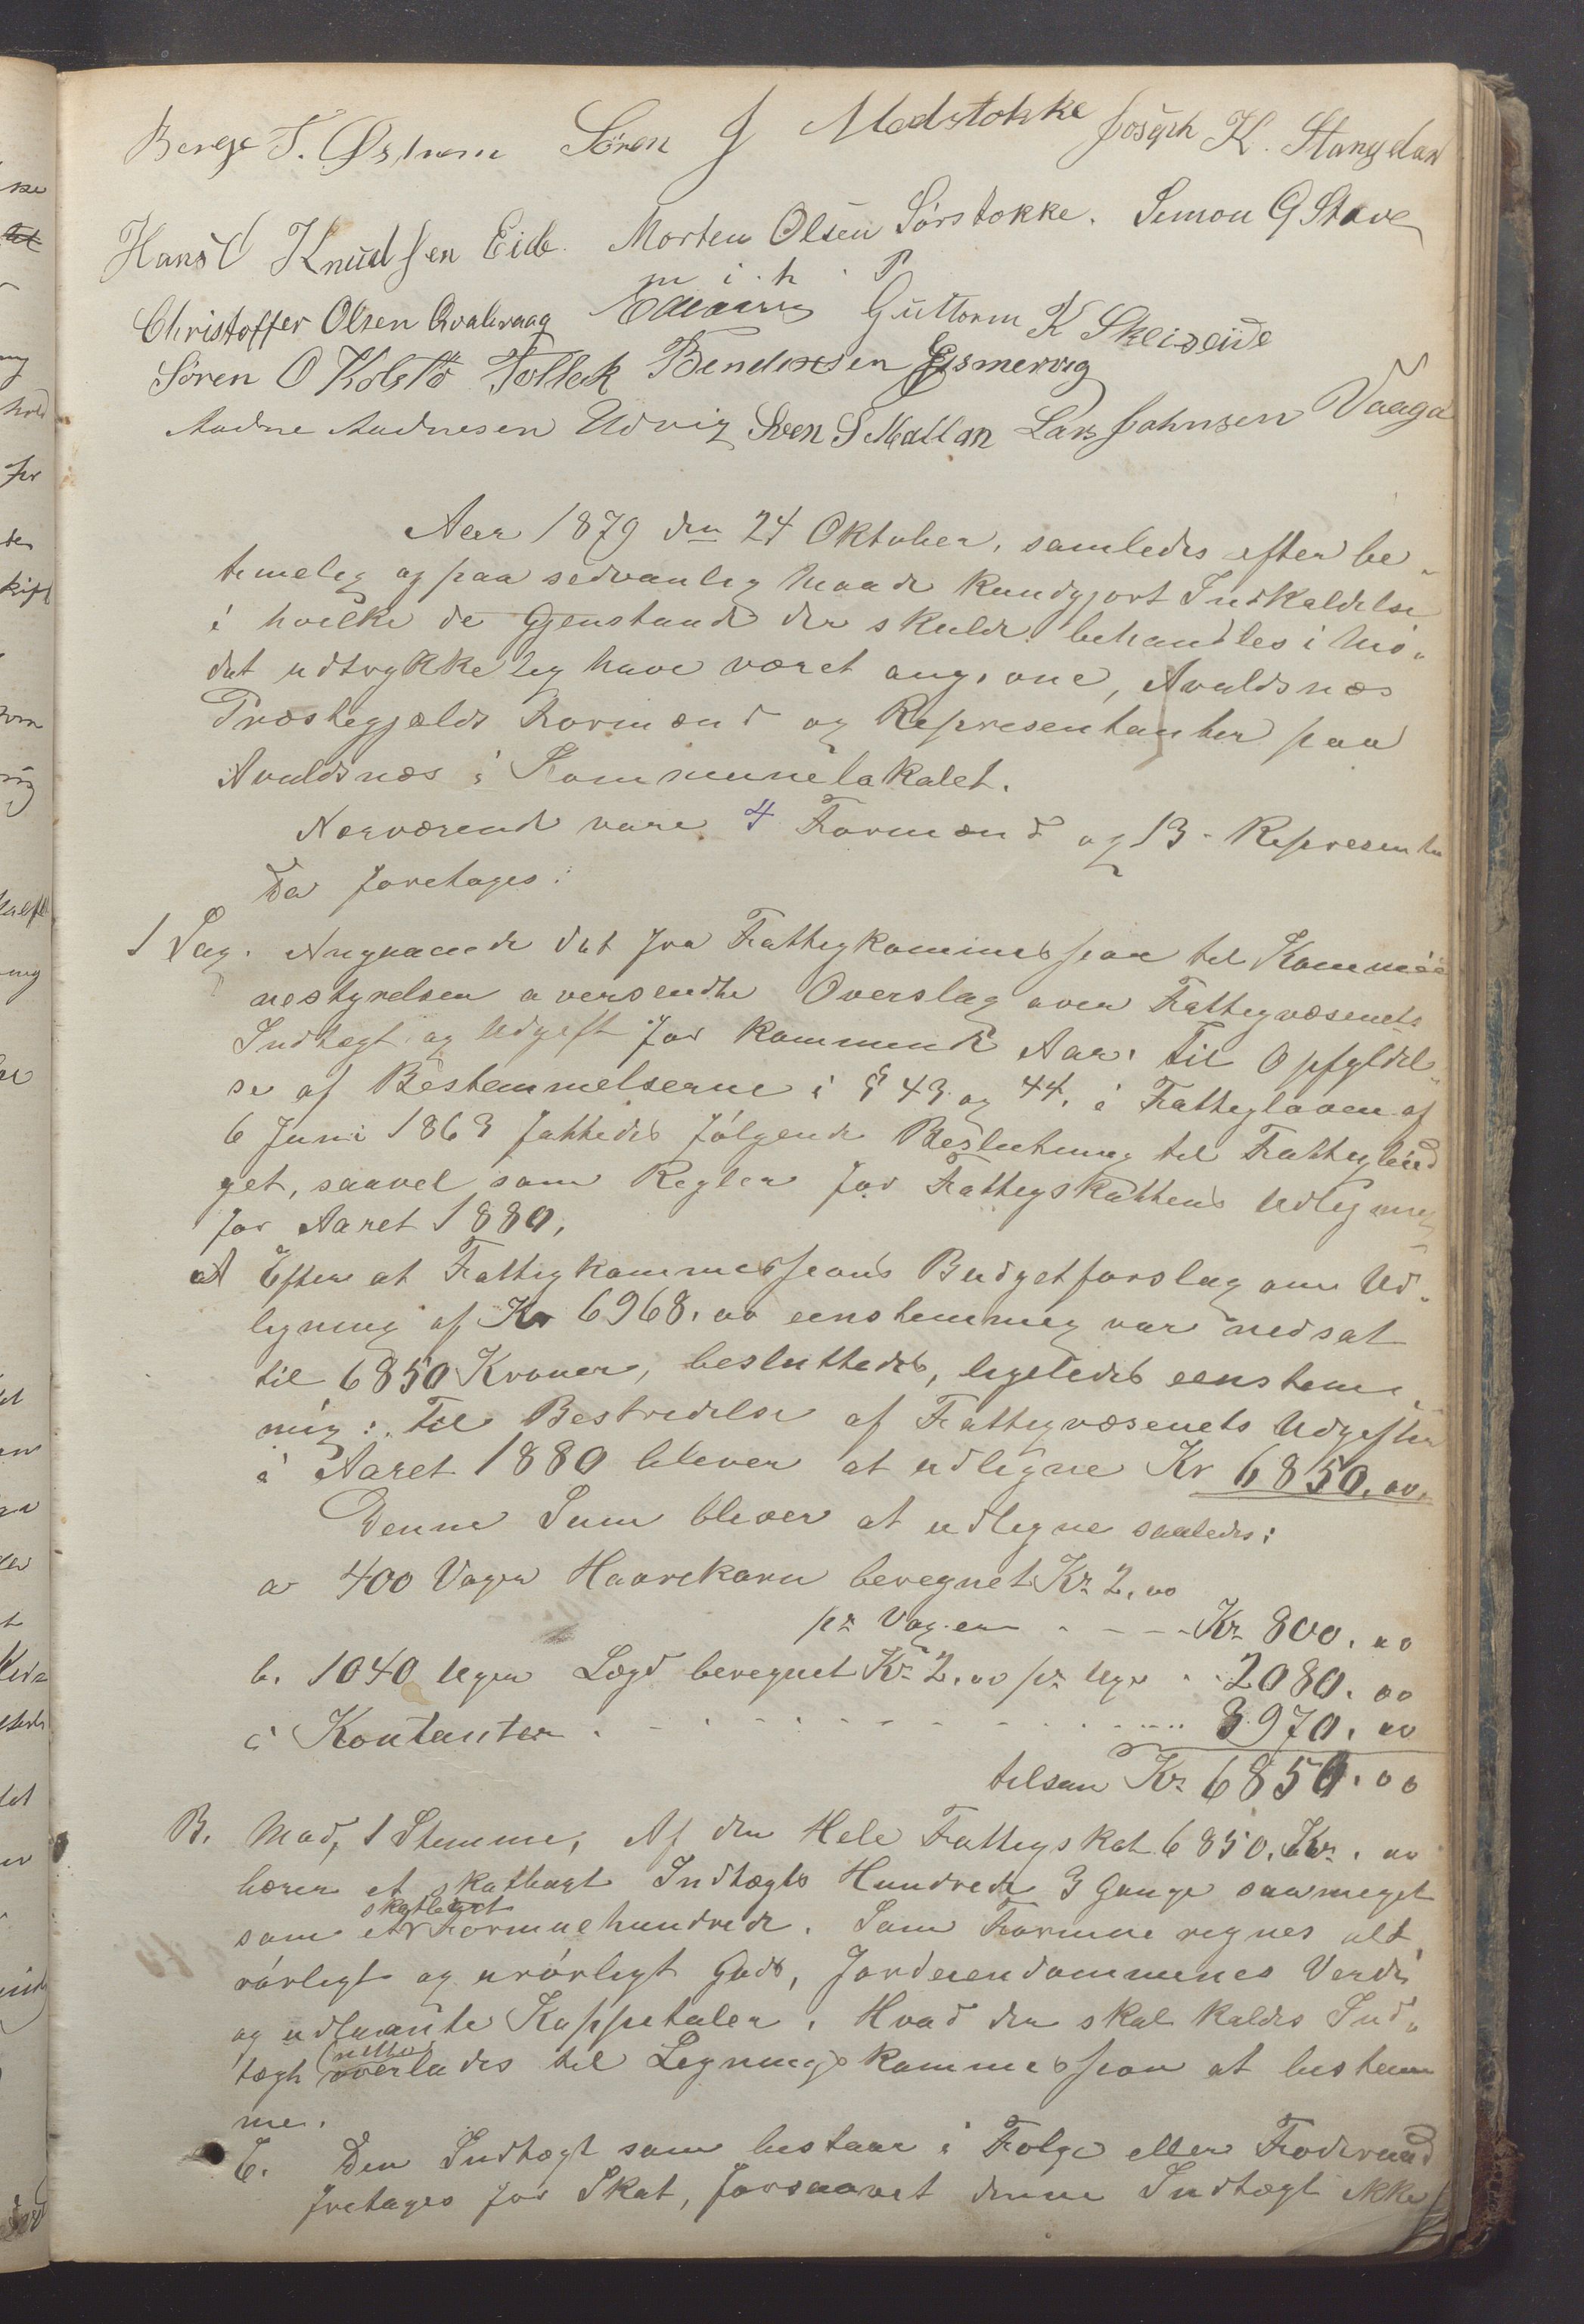 Berge T. Østrem Sören J Medstokke Joseph K. Stangeland
Hans Knudsen Eide. Morten Olsen Sörstokke. Simon G Stave
m i. h. P.
Christoffer Olsen Qvalevaag Guttorm K Skeiseide
Sören O Kolstö Tollak Bendixsen Gismervig
Audne Audnesen Udvig Sven S Mattan Lars Johnsen Vaaga
Aar 1879 den 24 Oktober, samledes efter be-
timelig og paa sedvanlig Maade kundgjort Indkaldelse
i hvilke de Gjenstande der skulde behandles i Mö-
det udtrykkelig have været angivne, Avaldsnæs
Præstegjælds Formænd og Repræsentanter paa
Avaldsnæs i Kommunelokalet.
Nærværende vare 4 Formænd og 13 Representa
Da foretoges:
1 Sag. Angaaende det fra Fattigkommissjon til Kommu
nestyrelsen oversendte Overslag over Fattigvæsenets
Indtægt og Udgift for kommende Aar. Til Opfyldel-
se af Bestemmelserne i § 43 og 44. i Fattigloven af
6 Juni 1863 fattedes fölgende Beslutning til Fattigbud
get, saavel som Regler for Fattigskattens Udligning
for Aaret 1880,
A Efter at Fattigkommissjons Budgetforslag om Ud-
ligning af Kr 6968.00 eenstemmig var nedsat
til 6850 Kroner, besluttedes, ligeledes eenstem-
mig: Til Bestridelse af Fattigvæsenets Udgifter
i Aaret 1880 bliver at udligne Kr 6850.00.
Denne Sum bliver at udligne saaledes:
a 400 Vager Haarekorn beregnet Kr 2.00
pr Vagen - - - - Kr 800.00
b. 1040 Uger Lægd beregnet Kr 2.00 pr Uge - - 2080.00
c Kontanter - - - - - - - - - - 3970.00
tilsam Kr 6850.00
B. Mod, 1 Stemme, Af den Hele Fattigskat 6850. Kr. 00
bærer et skatbart Indtægts Hundrede 3 Gange saameget
skatbart
som et Formuehundrede. Som Formue regnes alt
rörligt og urörligt Gods, Jordeiendommenes Verdi
og udlaante Kappitaler. Hvad der skal kaldes Ind-
(netto)
tægt overlades til Ligningskommissjon at bestem
me.
C. Den Indtægt som bestaar i Fölge eller Föderaad
fritages for Skat, forsaavidt denne Indtægt ikke